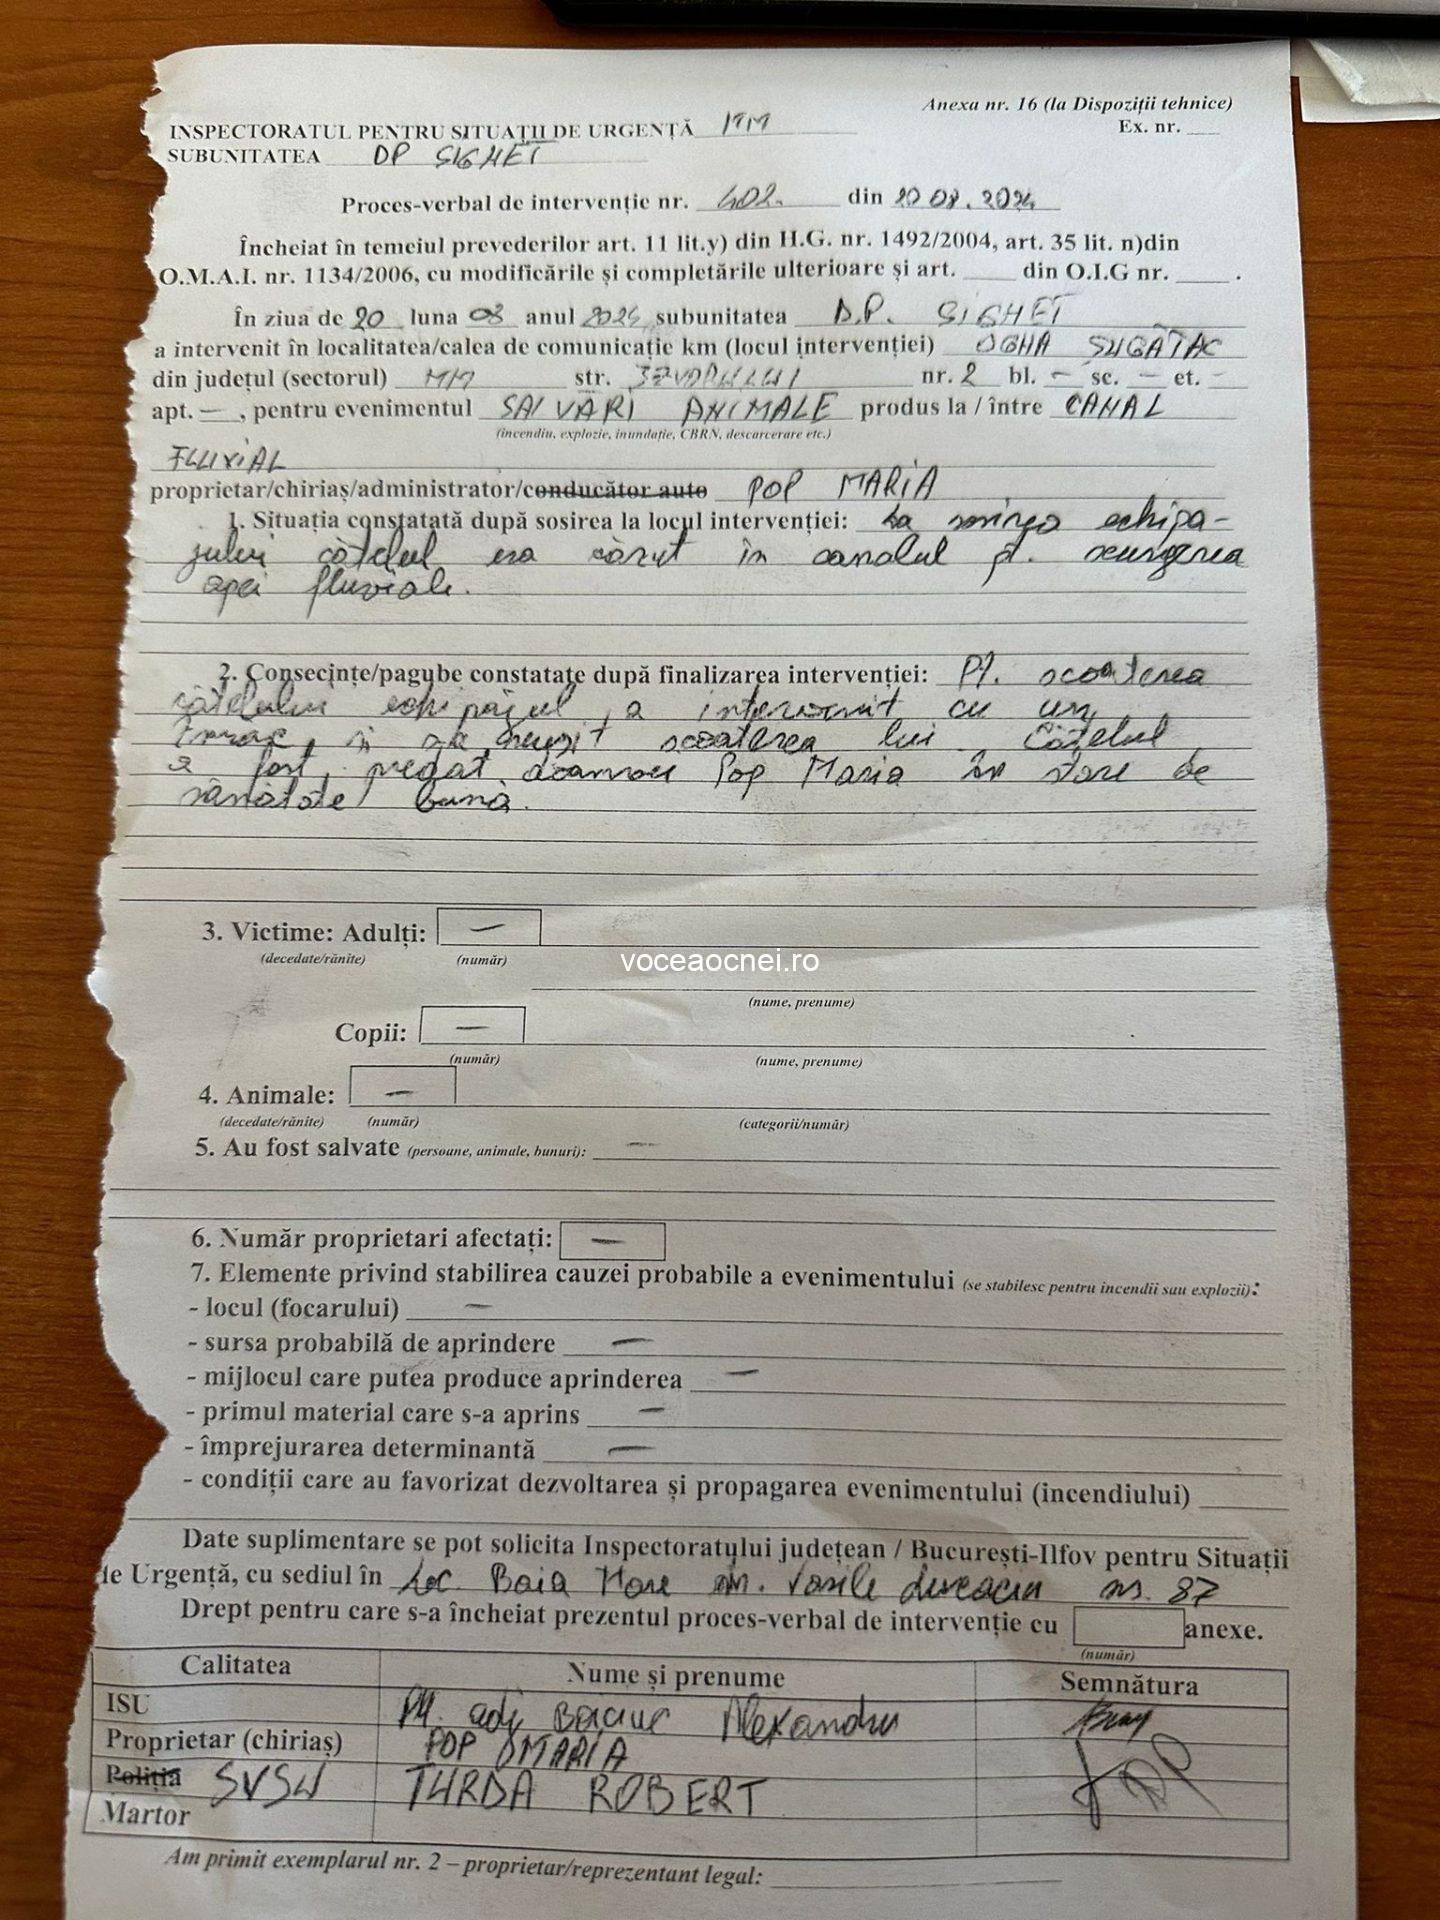 Anexa nr. 16 (la Dispoziții tehnice)
Ex. nr. ___
INSPECTORATUL PENTRU SITUAȚII DE URGENȚĂ MM
SUBUNITATEA DP SIGHET
Proces-verbal de intervenție nr. 402. din 20 08. 2024
Încheiat în temeiul prevederilor art. 11 lit.y) din H.G. nr. 1492/2004, art. 35 lit. n)din
O.M.A.I. nr. 1134/2006, cu modificările și completările ulterioare și art. ____ din O.I.G nr. ____ .
În ziua de 20 luna 08 anul 2024 subunitatea D.P. SIGHET
a intervenit în localitatea/calea de comunicație km (locul intervenției) OCNA ȘUGATAG
din județul (sectorul) MM str. IZVORULUI nr. 2 bl. – sc. – et. –
apt. –, pentru evenimentul SALVĂRI ANIMALE produs la / între CANAL
(incendiu, explozie, inundație, CBRN, descarcerare etc.)
FLUVIAL
proprietar/chiriaș/administrator/conducător auto POP MARIA
1. Situația constatată după sosirea la locul intervenției: La sosirea echipa-
jului cățelul era căzut în canalul pt. scurgerea
apei fluviale.
2. Consecințe/pagube constatate după finalizarea intervenției: Pt. scoaterea
cățelului echipajul a intervenit cu un
și scoaterea lui. Cățelul
a fost doamnei Pop Maria în stare de
sănătate bună.
3. Victime: Adulți: –
(decedate/rănite) (număr)
voceaocnei.ro
(nume, prenume)
Copii: –
(număr) (nume, prenume)
4. Animale: –
(decedate/rănite) (număr) (categorii/număr)
5. Au fost salvate (persoane, animale, bunuri): –
6. Număr proprietari afectați: –
7. Elemente privind stabilirea cauzei probabile a evenimentului (se stabilesc pentru incendii sau explozii):
- locul (focarului) –
- sursa probabilă de aprindere –
- mijlocul care putea produce aprinderea –
- primul material care s-a aprins –
- împrejurarea determinantă –
- condiții care au favorizat dezvoltarea și propagarea evenimentului (incendiului) ____
Date suplimentare se pot solicita Inspectoratului județean / București-Ilfov pentru Situații
de Urgență, cu sediul în Loc. Baia Mare str. Vasile Lucaciu nr. 87
Drept pentru care s-a încheiat prezentul proces-verbal de intervenție cu anexe.
(număr)
Calitatea Nume și prenume Semnătura
ISU adj Alexandru
Proprietar (chiriaș) POP MARIA
Poliția SVSU TURDA ROBERT
Martor
Am primit exemplarul nr. 2 – proprietar/reprezentant legal: ____